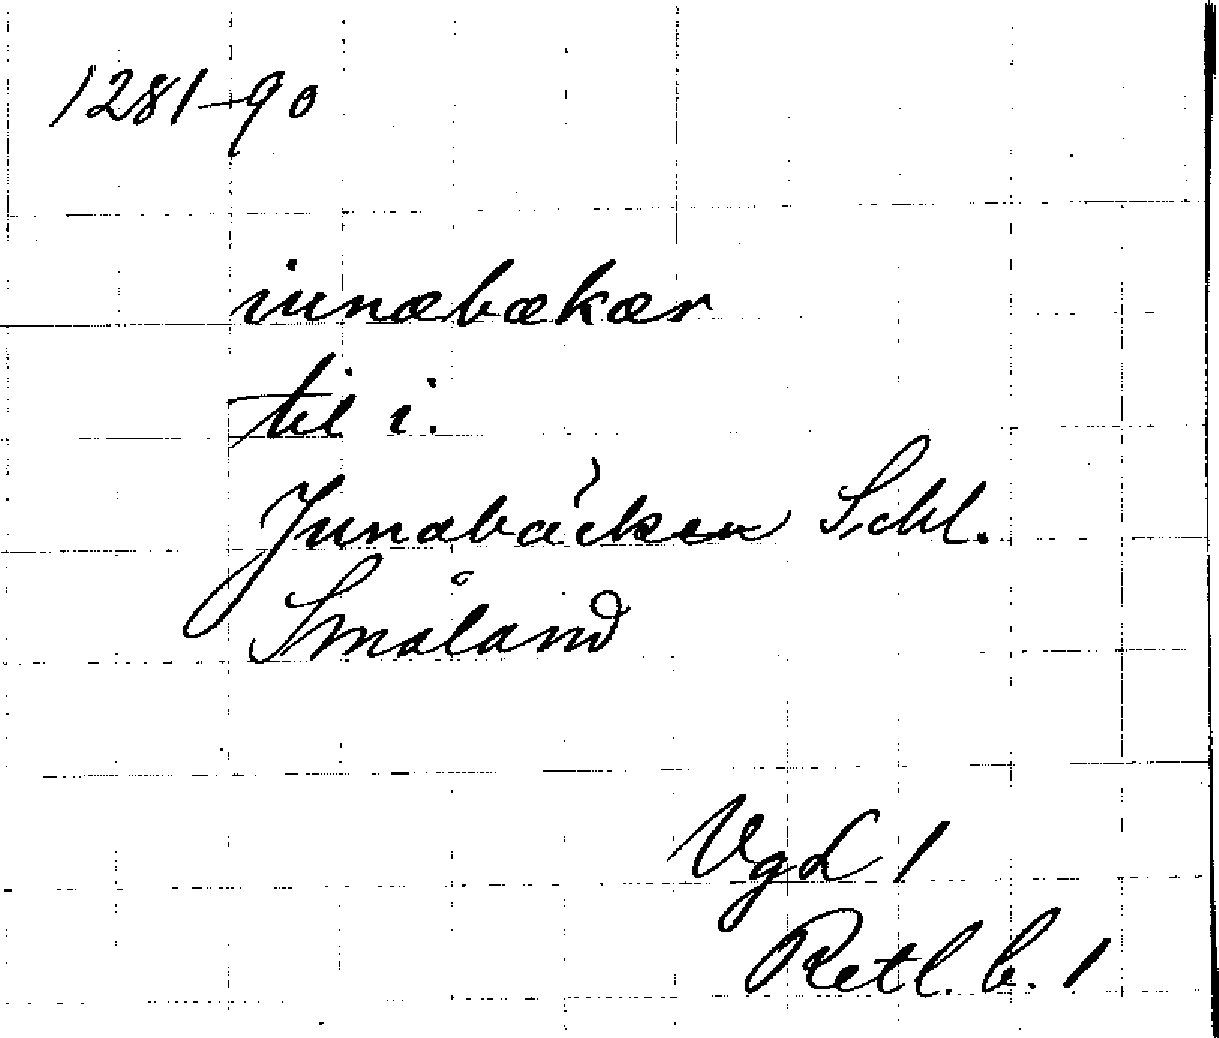 1281-90
iunæbækær
til i.
Junabäcken Schl.
Småland
VgL 1
Retl. b. 1